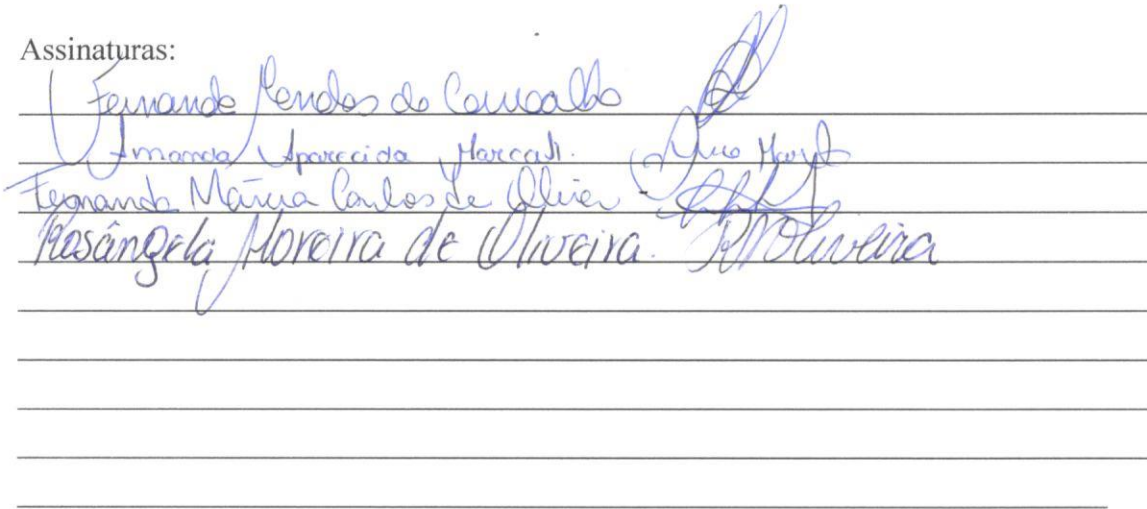 Assinaturas:
Fernanda Mendes de Carvalho
Amanda Aparecida
Fernanda Márcia Carlos de Oliveira
Rosângela Moreira de Oliveira. RMOliveira